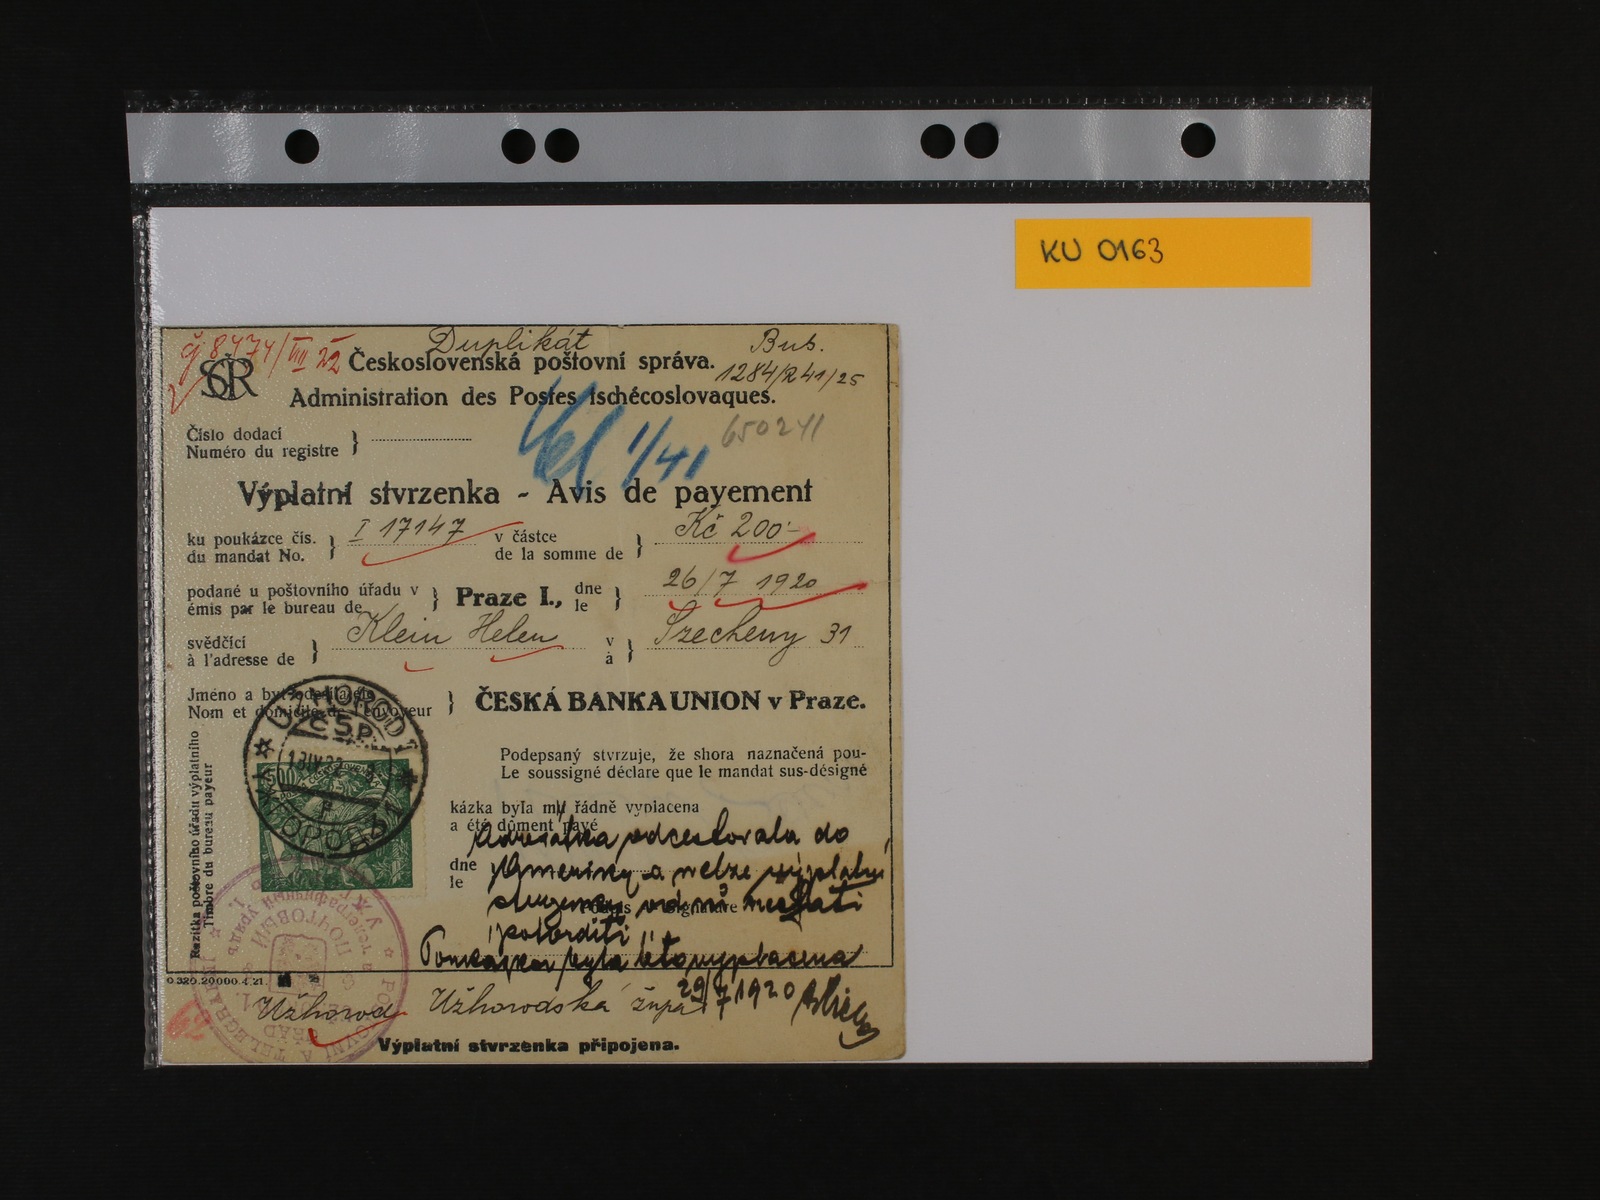 KU 0163
Duplikát
Bub.
č 8474/VIII 22
ČSR
Československá poštovní správa.
1284/R41/25
Administration des Postes tschécoslovaques.
650241
Číslo dodací
Numéro du registre
1/41
Výplatní stvrzenka - Avis de payement
ku poukázce čís. I 17147 v částce Kč 200·-
du mandat No. de la somme de
podané u poštovního úřadu v Praze I., dne 26/7 1920
émis par le bureau de le
svědčící Klein Helen v Szecheny 31
à l'adresse de à
Jméno a byt odesílatele
Nom et domicile de l'envoyeur
ČESKÁ BANKA UNION v Praze.
UŽHOROD 1
ČSP
500
Podepsaný stvrzuje, že shora naznačená pou-
Le soussigné déclare que le mandat sus-désigné
kázka byla mi řádně vyplacena
a été dûment payé
Adresátka odcestovala do
dne
le
Ameriky a nelze výplatní
stvrzenky od ní
potvrditi
Poukázka byla vyplacena
29/7 1920
Razítka poštovního úřadu výplatního
Timbre du bureau payeur
0.320.20000.4.21.
Užhorod Užhorodská župa
Výplatní stvrzenka připojena.